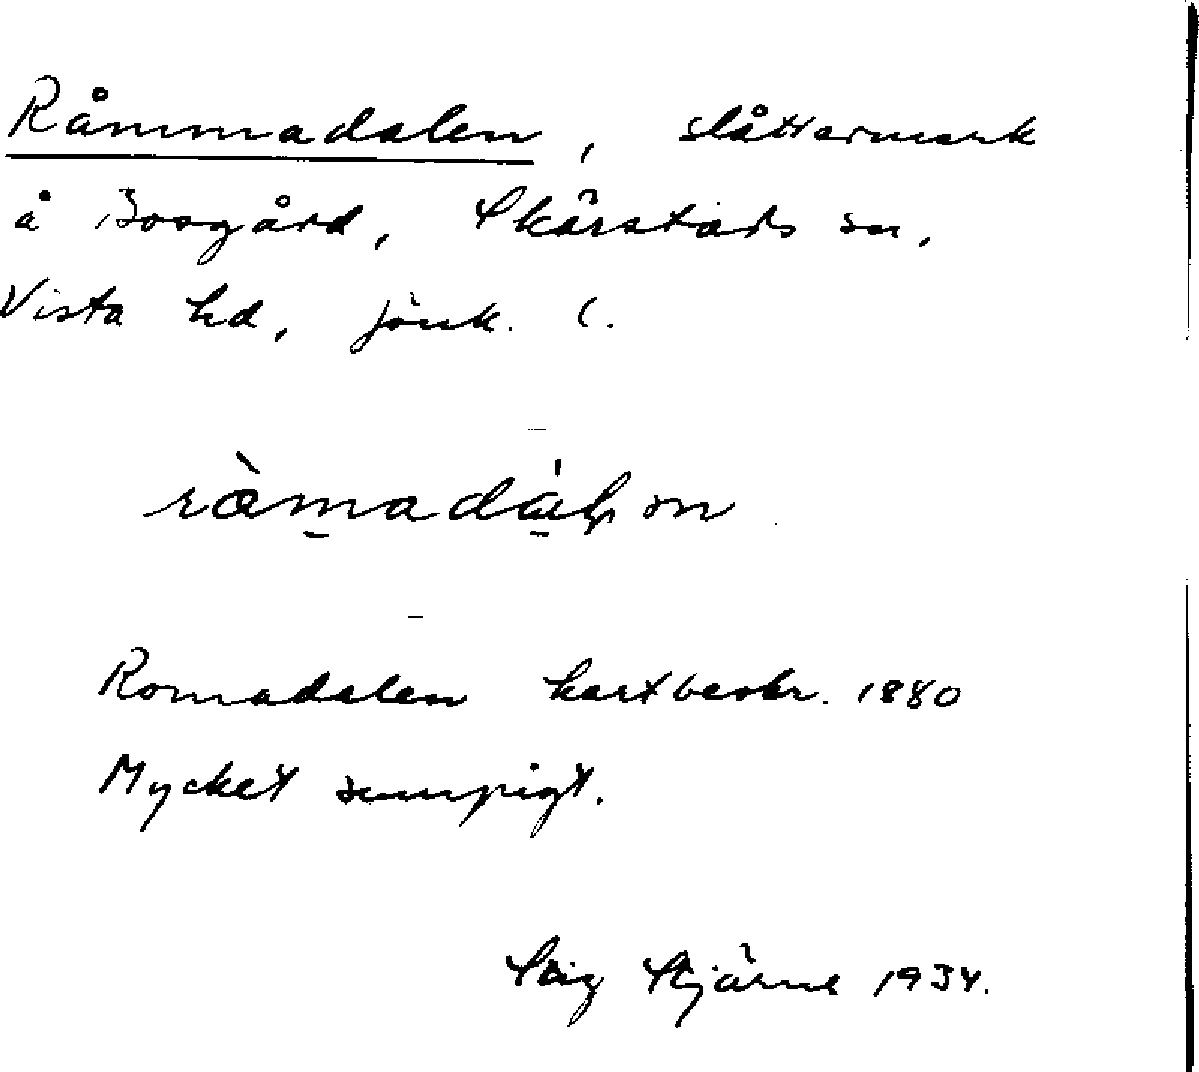 Råmmadalen, slåttermark
å Bosgård, Skärstads sn,
Vista hd, Jönk. l.
Romadalen kartbeskr. 1880
Mycket sumpigt.
Stig Stjärne 1934.